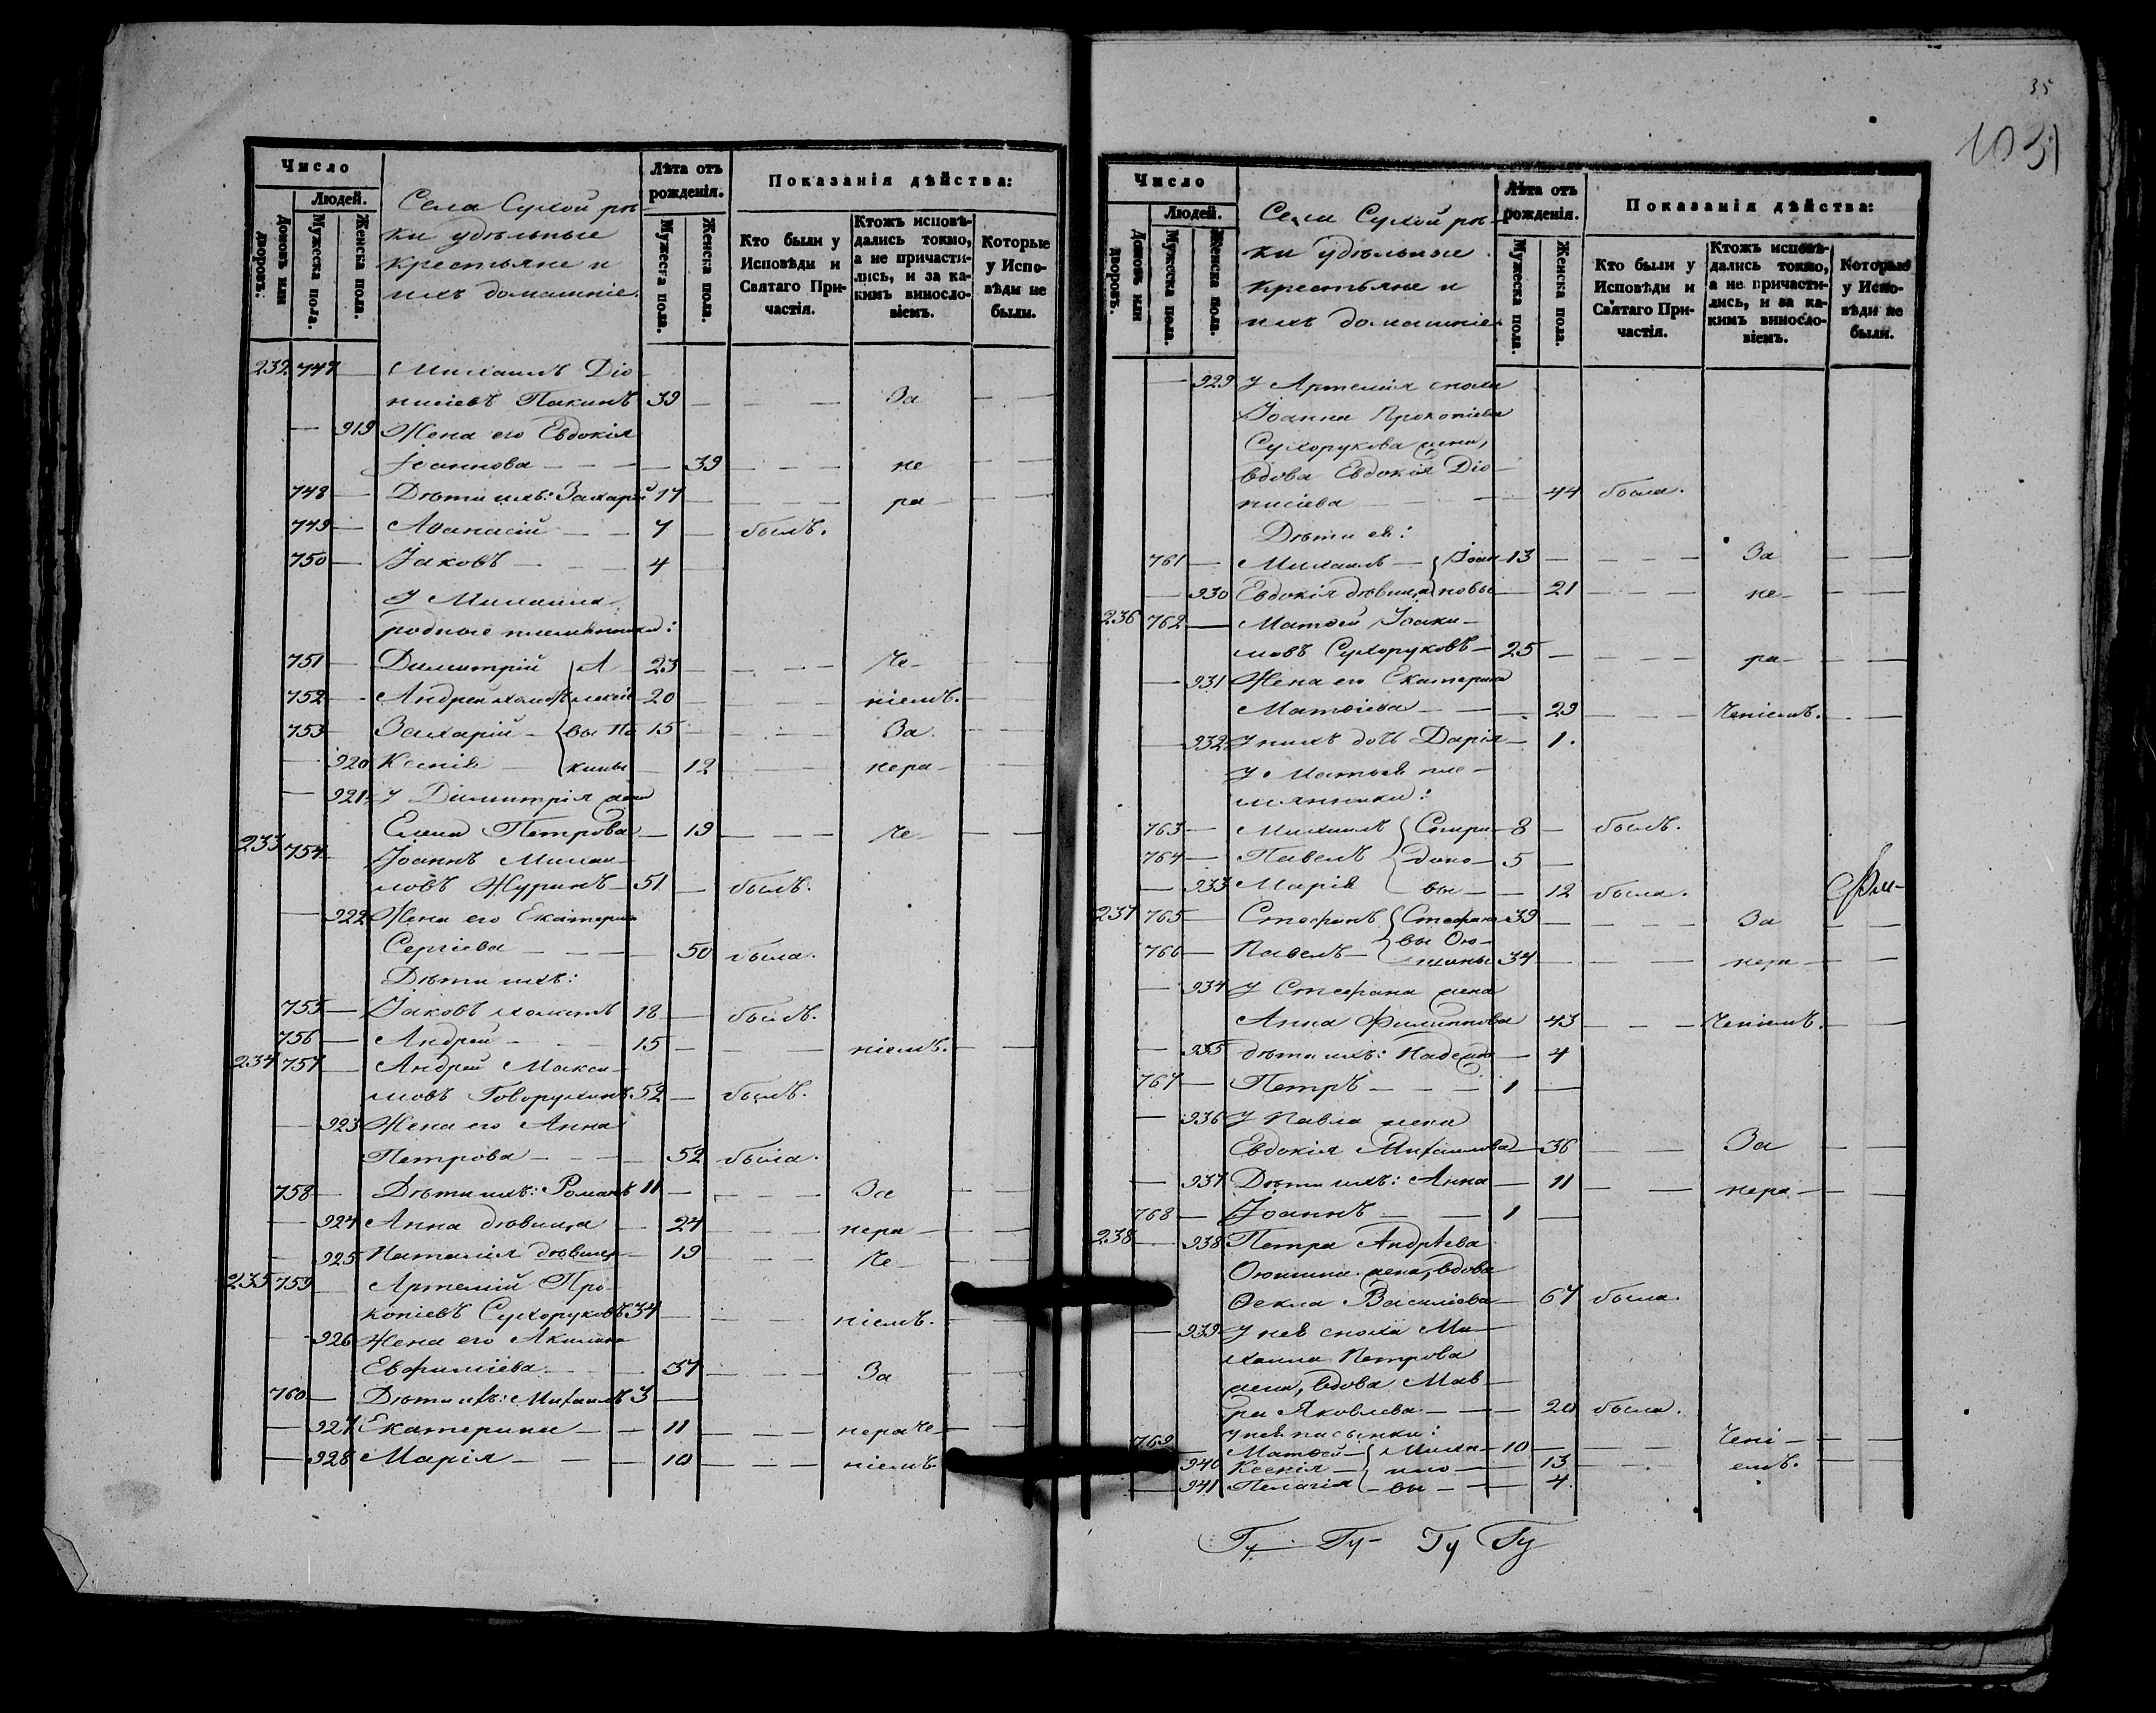 35
103
Число
Людей.
Домовъ или дворовъ.
Мужеска пола.
Женска пола.
Села Сухой рѣ-
ки удѣльные
крестьяне и
ихъ домашніе.
Лѣта отъ рожденія.
Мужеста пола.
Женска пола.
Показанія дѣйства:
Кто были у Исповѣди и Святаго При-частія.
Ктожъ исповѣ-дались токмо, а не причасти-лись, и за ка-кимъ винosло-віемъ.
Которые у Испо-вѣди не были.
232 747 — Михаилъ Діо-
нисіевъ Пакинъ 39 — — — За — —
— 919 Жена его Евдокія
Іоаннова — — — 39 — — — не — —
748 — Дѣти ихъ: Захарій 17 — — — ра — —
749 — Аѳанасій — — 7 — былъ.
750 — Іаковъ — — — 4 —
У Михаила
родные племянники:
751 — Димитрій 23 — — — че —
752 — Андрей холостъ 20 — — — ніемъ.
753 — Захарій — 15 — — — За — —
— 920 Ксенія — 12 — — нера — —
— 921 У Димитрія жена
Елена Петрова — 19 — — — че — —
233 754 — Іоаннъ Михаи-
ловъ Журинъ — 51 — былъ.
— 922 Жена его Екатерина
Сергіева — — — — 50 была.
Дѣти ихъ:
755 — Іаковъ холостъ 18 — былъ.
756 — Андрей — — — 15 — — — ніемъ. — —
234 757 — Андрей Макси-
мовъ Говорухинъ 52 — былъ.
— 923 Жена его Анна
Петрова — — — — 52 была.
758 — Дѣти ихъ: Романъ 11 — — — — За — —
— 924 Анна дѣвица — 24 — — — нера — —
— 925 Наталія дѣвица — 19 — — — че — —
235 759 — Артемій Про-
копіевъ Сухоруковъ 34 — — — ніемъ. — —
— 926 Жена его Акилина
Евфиміева — — — 37 — — — За — —
760 — Дѣти ихъ: Михаилъ 3 —
— 927 Екатерина — — 11 — — — нераче — —
— 928 Марія — — — — 10 — — — ніемъ.
Число
Людей.
Домовъ или дворовъ.
Мужеска пола.
Женска пола.
Села Сухой рѣ-
ки удѣльные
крестьяне и
ихъ домашніе.
Лѣта отъ рожденія.
Мужеска пола.
Женска пола.
Показанія дѣйства:
Кто были у Исповѣди и Святаго При-частія.
Ктожъ исповѣ-дались токмо, а не причасти-лись, и за ка-кимъ винoсло-віемъ.
Которые у Испо-вѣди не были.
— 929 У Артемія сноха
Іоанна Прокопіева
Сухорукова жена,
вдова Евдокія Діо-
нисіева — — — 44 была.
Дѣти ея:
761 — Михаилъ — Іоан- 13 — — — — За — —
— 930 Евдокія дѣвица новы — 21 — — — не — —
236 762 — Матѳей Іоаки-
мовъ Сухоруковъ — 25 — — — — ра — — —
— 931 Жена его Екатерина
Матѳіева — — — 29 — — — ченіемъ. — —
— 932 У нихъ дочь Дарія — 1.
У Матѳея пле-
мянники:
763 — Михаилъ Спири- 8 — былъ.
764 — Павелъ дано- 5 —
— 933 Марія вы — — 12 была.
237 765 — Стефанъ Стефано 39 — — — — За — —
766 — Павелъ — вы 34 — — — нера — —
— 934 У Стефана жена
Анна Филиппова 43 — — — ченіемъ. — —
— 935 дѣти ихъ: Надежда — 4
767 — Петръ — — — 1 —
— 936 У Павла жена
Евдокія Михаилова — 36 — — За — —
— 937 Дѣти ихъ: Анна — 11 — — нера — —
768 — Іоаннъ — — 1 —
238 — 938 Петра Андрѣева
жена, вдова
Ѳекла Василіева — 67 была.
— 939 У нея сноха Ми-
хаила Петрова
жена, вдова Мав-
ра Яковлева — — — 20 была.
у нея пасынки:
769 — Матѳей — Михаи- 10 — — — чені — —
— 940 Ксенія — ло — 13 — — емъ. — —
— 941 Пелагія — вы — — 4.